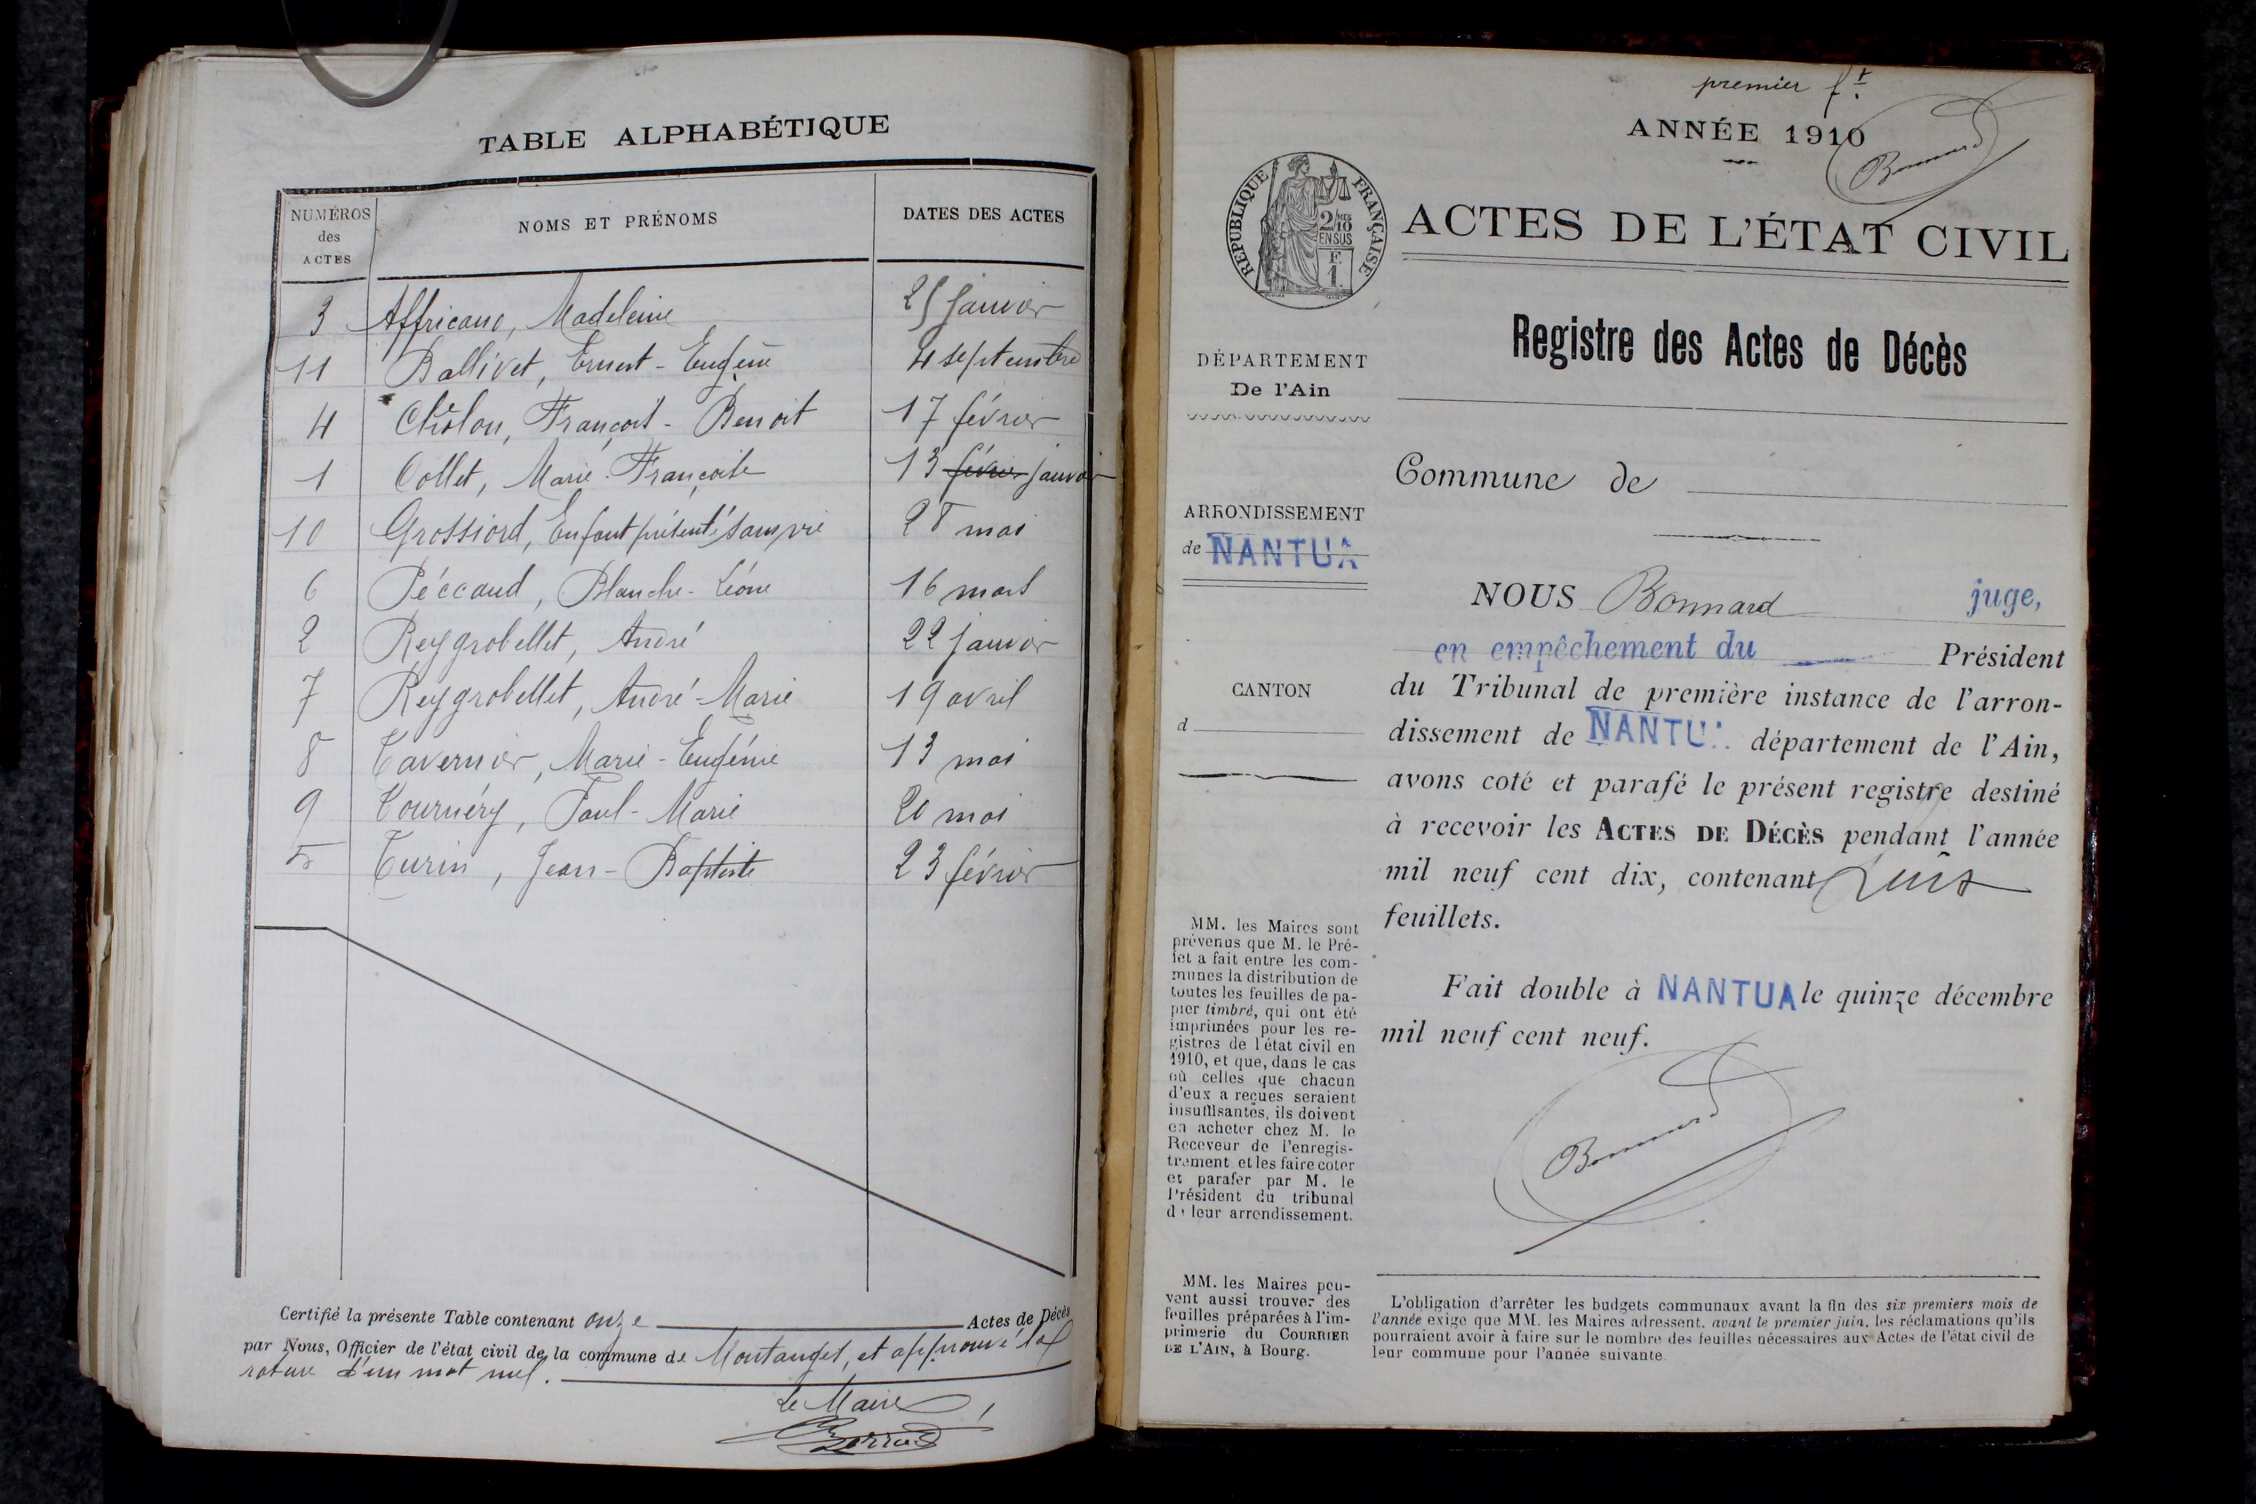 TABLE ALPHABÉTIQUE
NUMÉROS des ACTES NOMS ET PRÉNOMS DATES DES ACTES
3 Affricano, Madeleine 25 janvier
11 Ballivet, Ernest-Eugène 4 septembre
4 Cholon, François-Benoit 17 février
1 Collet, Marie-Françoise 13 février janvier
10 Grossiord, Enfant présenté sans vie 28 mai
6 Péccaud, Blanche-Léone 16 mars
2 Reygrobellet, André 22 janvier
7 Reygrobellet, André-Marie 19 avril
8 Tavernier, Marie-Eugénie 13 mai
9 Tournéry, Paul-Marie 20 mai
5 Turin, Jean-Baptiste 23 février
Certifié la présente Table contenant onze Actes de Décès
par Nous, Officier de l'état civil de la commune de Montanges, et approuvé la
rature d'un mot nul.
Le Maire,
premier ft.
ANNÉE 1910
Bonnard
RÉPUBLIQUE FRANÇAISE
2/10
EN SUS
E
1.
ACTES DE L'ÉTAT CIVIL
Registre des Actes de Décès
DÉPARTEMENT
De l'Ain
Commune de
ARRONDISSEMENT
de NANTUA
CANTON
d
NOUS Bonnard juge,
en empêchement du Président
du Tribunal de première instance de l'arron-
dissement de NANTUA département de l'Ain,
avons coté et parafé le présent registre destiné
à recevoir les ACTES DE DÉCÈS pendant l'année
mil neuf cent dix, contenant
feuillets.
Fait double à NANTUA le quinze décembre
mil neuf cent neuf.
Bonnard
MM. les Maires sont
prévenus que M. le Pré-
fet a fait entre les com-
munes la distribution de
toutes les feuilles de pa-
pier timbré, qui ont été
imprimées pour les re-
gistres de l'état civil en
1910, et que, dans le cas
où celles que chacun
d'eux a reçues seraient
insuffisantes, ils doivent
en acheter chez M. le
Receveur de l'enregis-
trement et les faire coter
et parafer par M. le
Président du tribunal
de leur arrondissement.
MM. les Maires peu-
vent aussi trouver des
feuilles préparées à l'im-
primerie du COURRIER
DE L'AIN, à Bourg.
L'obligation d'arrêter les budgets communaux avant la fin des six premiers mois de
l'année exige que MM. les Maires adressent, avant le premier juin, les réclamations qu'ils
pourraient avoir à faire sur le nombre des feuilles nécessaires aux Actes de l'état civil de
leur commune pour l'année suivante.